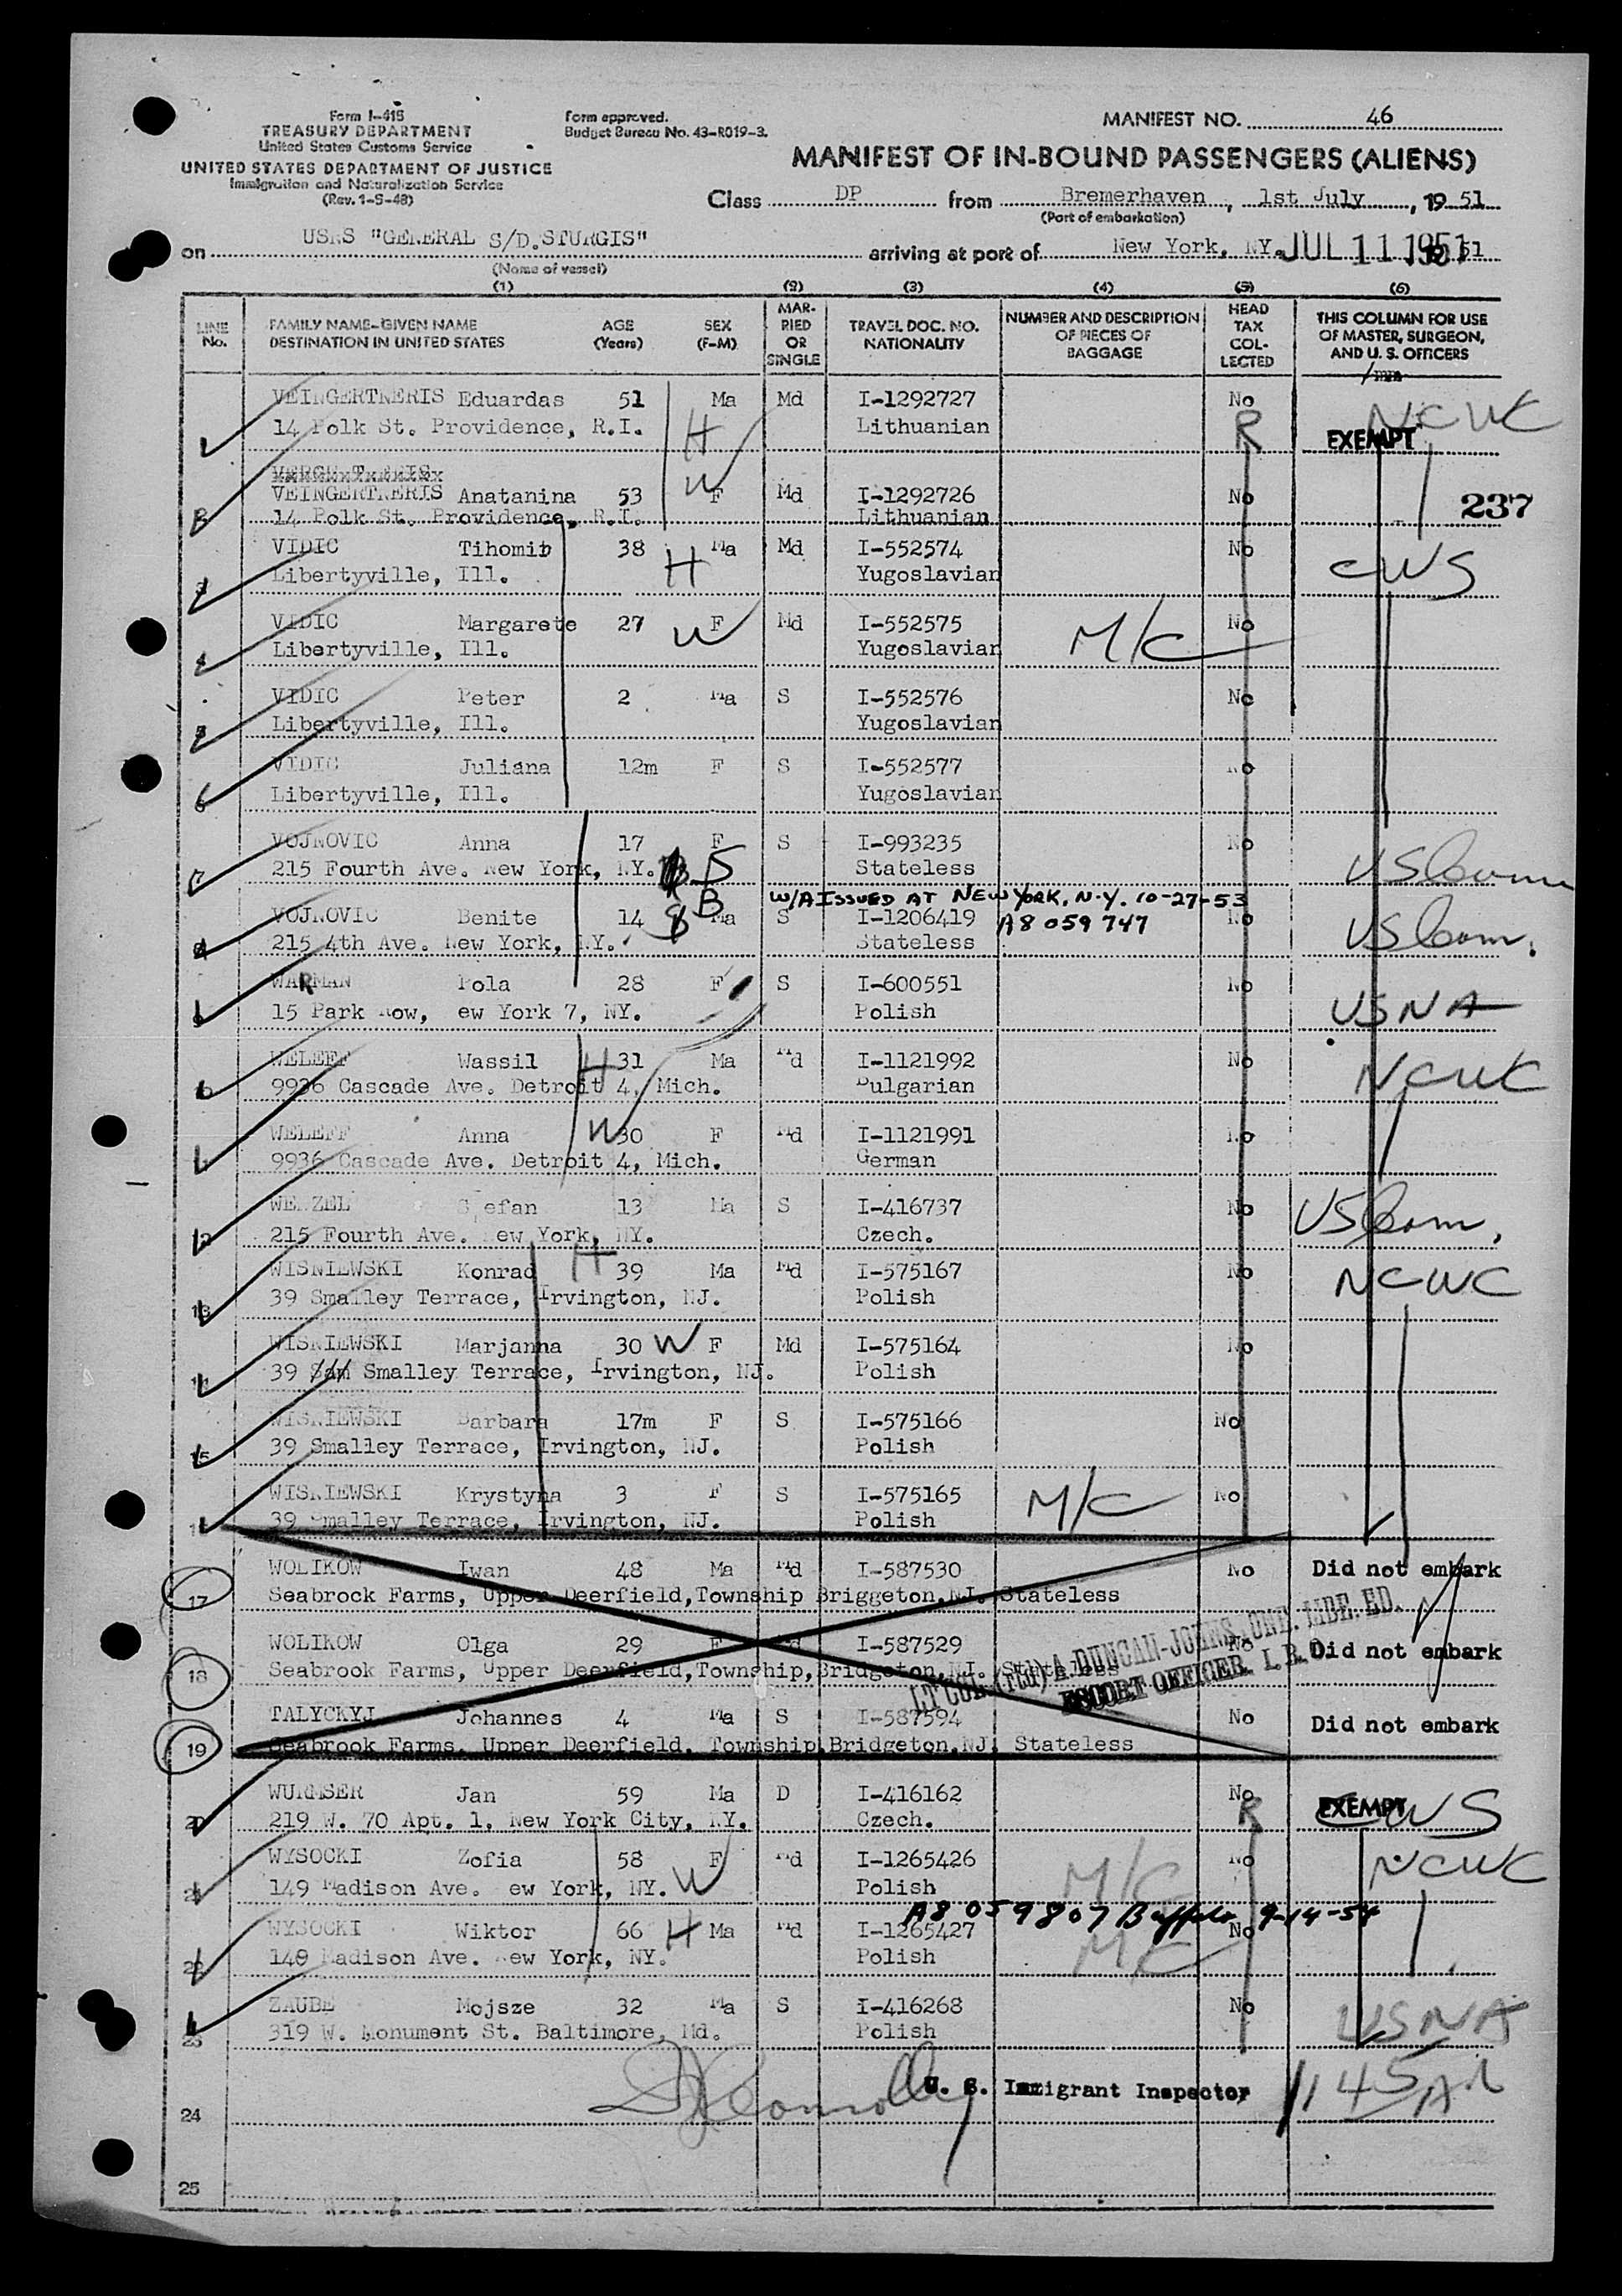 Form I-415
TREASURY DEPARTMENT
United States Customs Service
UNITED STATES DEPARTMENT OF JUSTICE
Immigration and Naturalization Service
(Rev. 1-5-48)
Form approved.
Budget Bureau No. 43-R019-3.
MANIFEST NO. 46
MANIFEST OF IN-BOUND PASSENGERS (ALIENS)
Class DP from Bremerhaven, 1st July, 19 51
(Port of embarkation)
on USNS "GENERAL S/D.STURGIS" arriving at port of New York, NY. JUL 11 1951 51
(Name of vessel)
(1) (2) (3) (4) (5) (6)
LINE No. FAMILY NAME-GIVEN NAME DESTINATION IN UNITED STATES AGE (Years) SEX (F-M) MARRIED OR SINGLE TRAVEL DOC. NO. NATIONALITY NUMBER AND DESCRIPTION OF PIECES OF BAGGAGE HEAD TAX COLLECTED THIS COLUMN FOR USE OF MASTER, SURGEON, AND U. S. OFFICERS
VEINGERTNERIS Eduardas 51 Ma Md I-1292727 No NCWC
14 Polk St. Providence, R.I. H Lithuanian R EXEMPT
VEINGERTNERIS Anatanina 53 W F Md I-1292726 No 237
14 Polk St. Providence, R.I. Lithuanian
VIDIC Tihomib 38 Ma Md I-552574 No
Libertyville, Ill. H Yugoslavian CWS
4 VIDIC Margarete 27 W F Md I-552575 M/C No
Libertyville, Ill. Yugoslavian
5 VIDIC Peter 2 Ma S I-552576 No
Libertyville, Ill. Yugoslavian
6 VIDIC Juliana 12m F S I-552577 No
Libertyville, Ill. Yugoslavian
7 VOJNOVIC Anna 17 F S I-993235 No
215 Fourth Ave. New York, NY. S Stateless USCom
B W/A ISSUED AT NEW YORK, N.Y. 10-27-53
VOJNOVIC Benite 14 Ma S I-1206419 A8 059 747 No
215 4th Ave. New York, N.Y. Stateless USCom.
WARMAN Pola 28 F S I-600551 No
15 Park Row, ew York 7, NY. Polish USNA
WELEFF Wassil H 31 Ma Md I-1121992 No
9936 Cascade Ave. Detroit 4, Mich. Bulgarian NCWC
WELEFF Anna W 30 F Md I-1121991 No
9936 Cascade Ave. Detroit 4, Mich. German
12 WENZEL Stefan 13 Ma S I-416737 No
215 Fourth Ave. New York, NY. Czech. USCom,
13 WISNIEWSKI Konrad H 39 Ma Md I-575167 No
39 Smalley Terrace, Irvington, NJ. Polish NCWC
WISNIEWSKI Marjanna 30 W F Md I-575164 No
39 Smalley Terrace, Irvington, NJ. Polish
15 WISNIEWSKI Barbara 17m F S I-575166 No
39 Smalley Terrace, Irvington, NJ. Polish
WISNIEWSKI Krystyna 3 F S I-575165 M/C No
39 Smalley Terrace, Irvington, NJ. Polish
17 WOLIKOW Iwan 48 Ma Md I-587530 No Did not embark
Seabrock Farms, Upper Deerfield,Township Briggeton,NJ. Stateless
18 WOLIKOW Olga 29 F Md I-587529 No Did not embark
Seabrook Farms, Upper Deerfield,Township,Bridgeton,NJ. Stateless
LT COL (rtd) A. DUNCAN-JOHNSTONE. MBE. ED.
ESCORT OFFICER I.R.O.
19 TALYCKYJ Johannes 4 Ma S I-587594 No Did not embark
Seabrook Farms, Upper Deerfield, Township,Bridgeton,NJ. Stateless
20 WURMSER Jan 59 Ma D I-416162 No
219 W. 70 Apt. 1, New York City, NY. Czech. R EXEMPT CWS
WYSOCKI Zofia 58 F Md I-1265426 No NCWC
149 Madison Ave. ew York, NY. W Polish M/C
A8 059807 Buffalo 9-14-54
WYSOCKI Wiktor 66 H Ma Md I-1265427 No
149 Madison Ave. New York, NY. Polish M/C
23 ZAUBE Mojsze 32 Ma S I-416268 No
319 W. Monument St. Baltimore, Md. Polish USNA
U. S. Immigrant Inspector
24
25